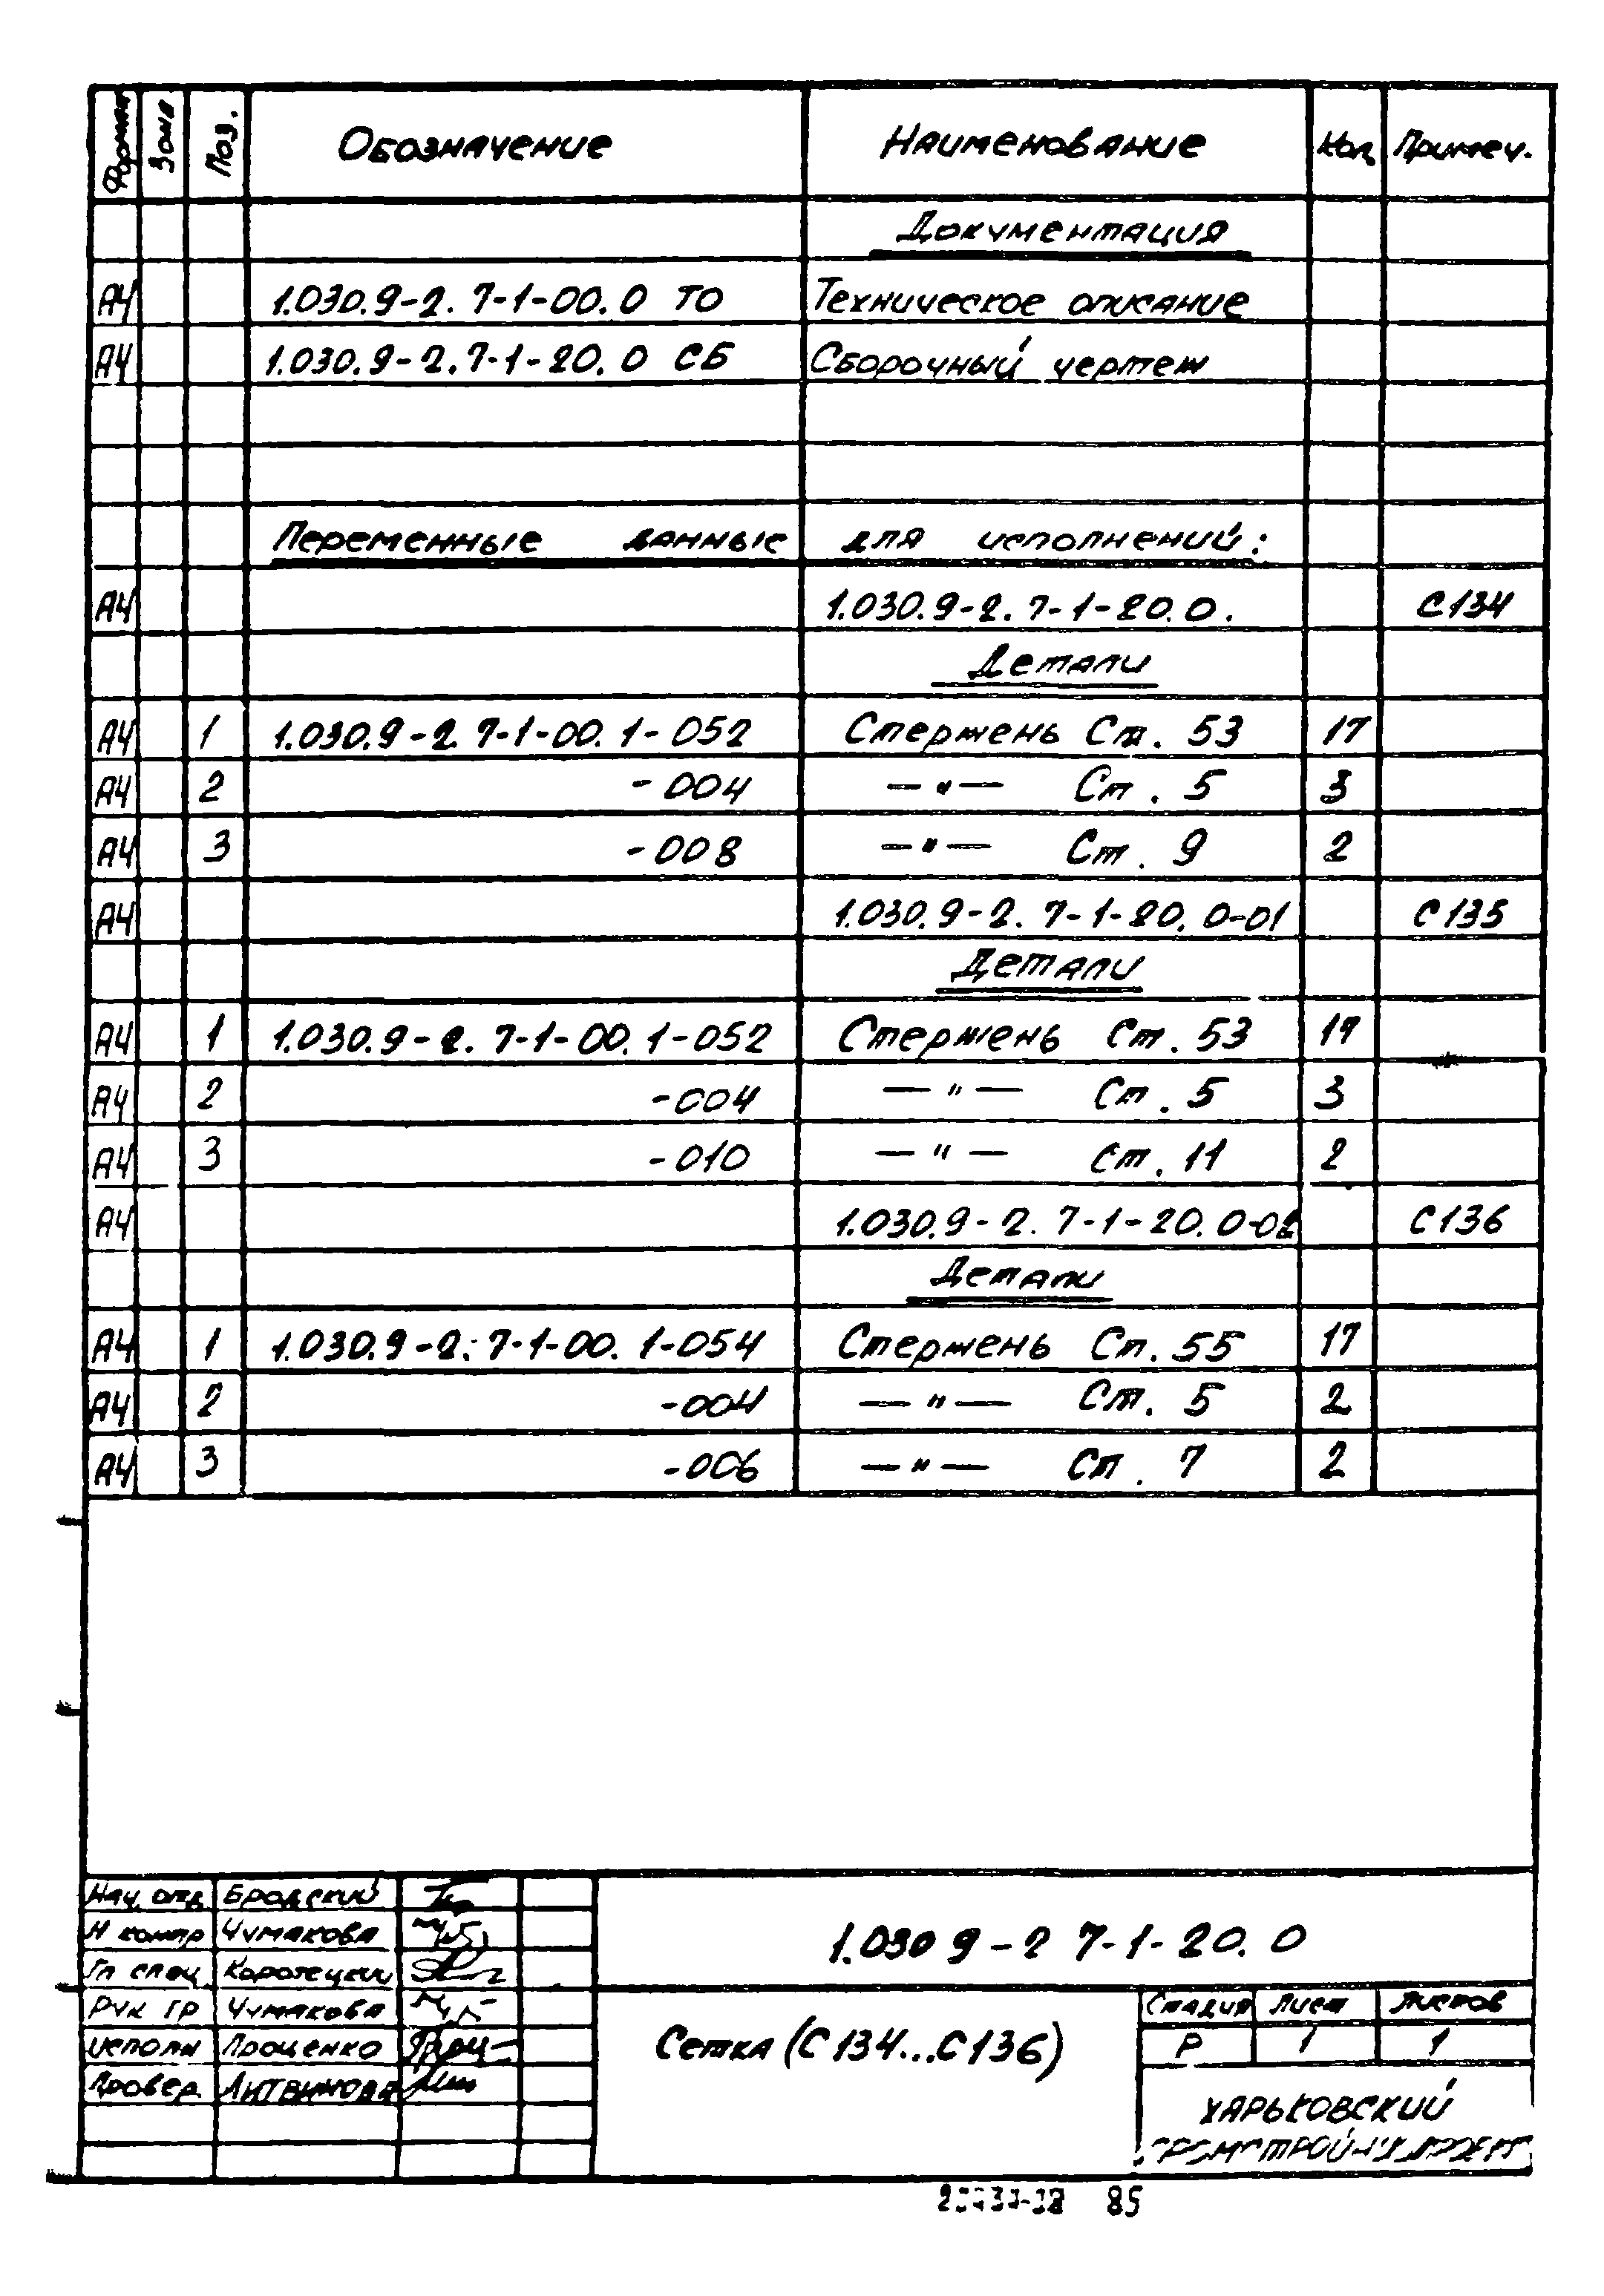 Формат Зона Поз. Обозначение Наименование Кол. Примеч.
Документация
А4 1.030.9-2. 7-1-00. 0 ТО Техническое описание
А4 1.030.9-2. 7-1-20. 0 СБ Сборочный чертеж
Переменные данные для исполнений:
А4 1.030.9-2. 7-1-20. 0. С134
Детали
А4 1 1.030.9-2. 7-1-00. 1-052 Стержень Ст. 53 17
А4 2 -004 —"— Ст. 5 3
А4 3 -008 —"— Ст. 9 2
А4 1.030.9-2. 7-1-20. 0-01 С135
Детали
А4 1 1.030.9-2. 7-1-00. 1-052 Стержень Ст. 53 17
А4 2 -004 —"— Ст. 5 3
А4 3 -010 —"— Ст. 11 2
А4 1.030.9-2. 7-1-20. 0-02 С136
Детали
А4 1 1.030.9-2. 7-1-00. 1-054 Стержень Ст. 55 17
А4 2 -004 —"— Ст. 5 2
А4 3 -006 —"— Ст. 7 2
Нач. отд Бродский
Н контр Чумакова
Гл спец Коротецкий
Рук гр Чумакова
Исполн Проценко
Провер Литвинова
1.030 9-2 7-1-20. 0
Сетка (С134...С136)
Стадия Лист Листов
Р 1 1
Харьковский
85